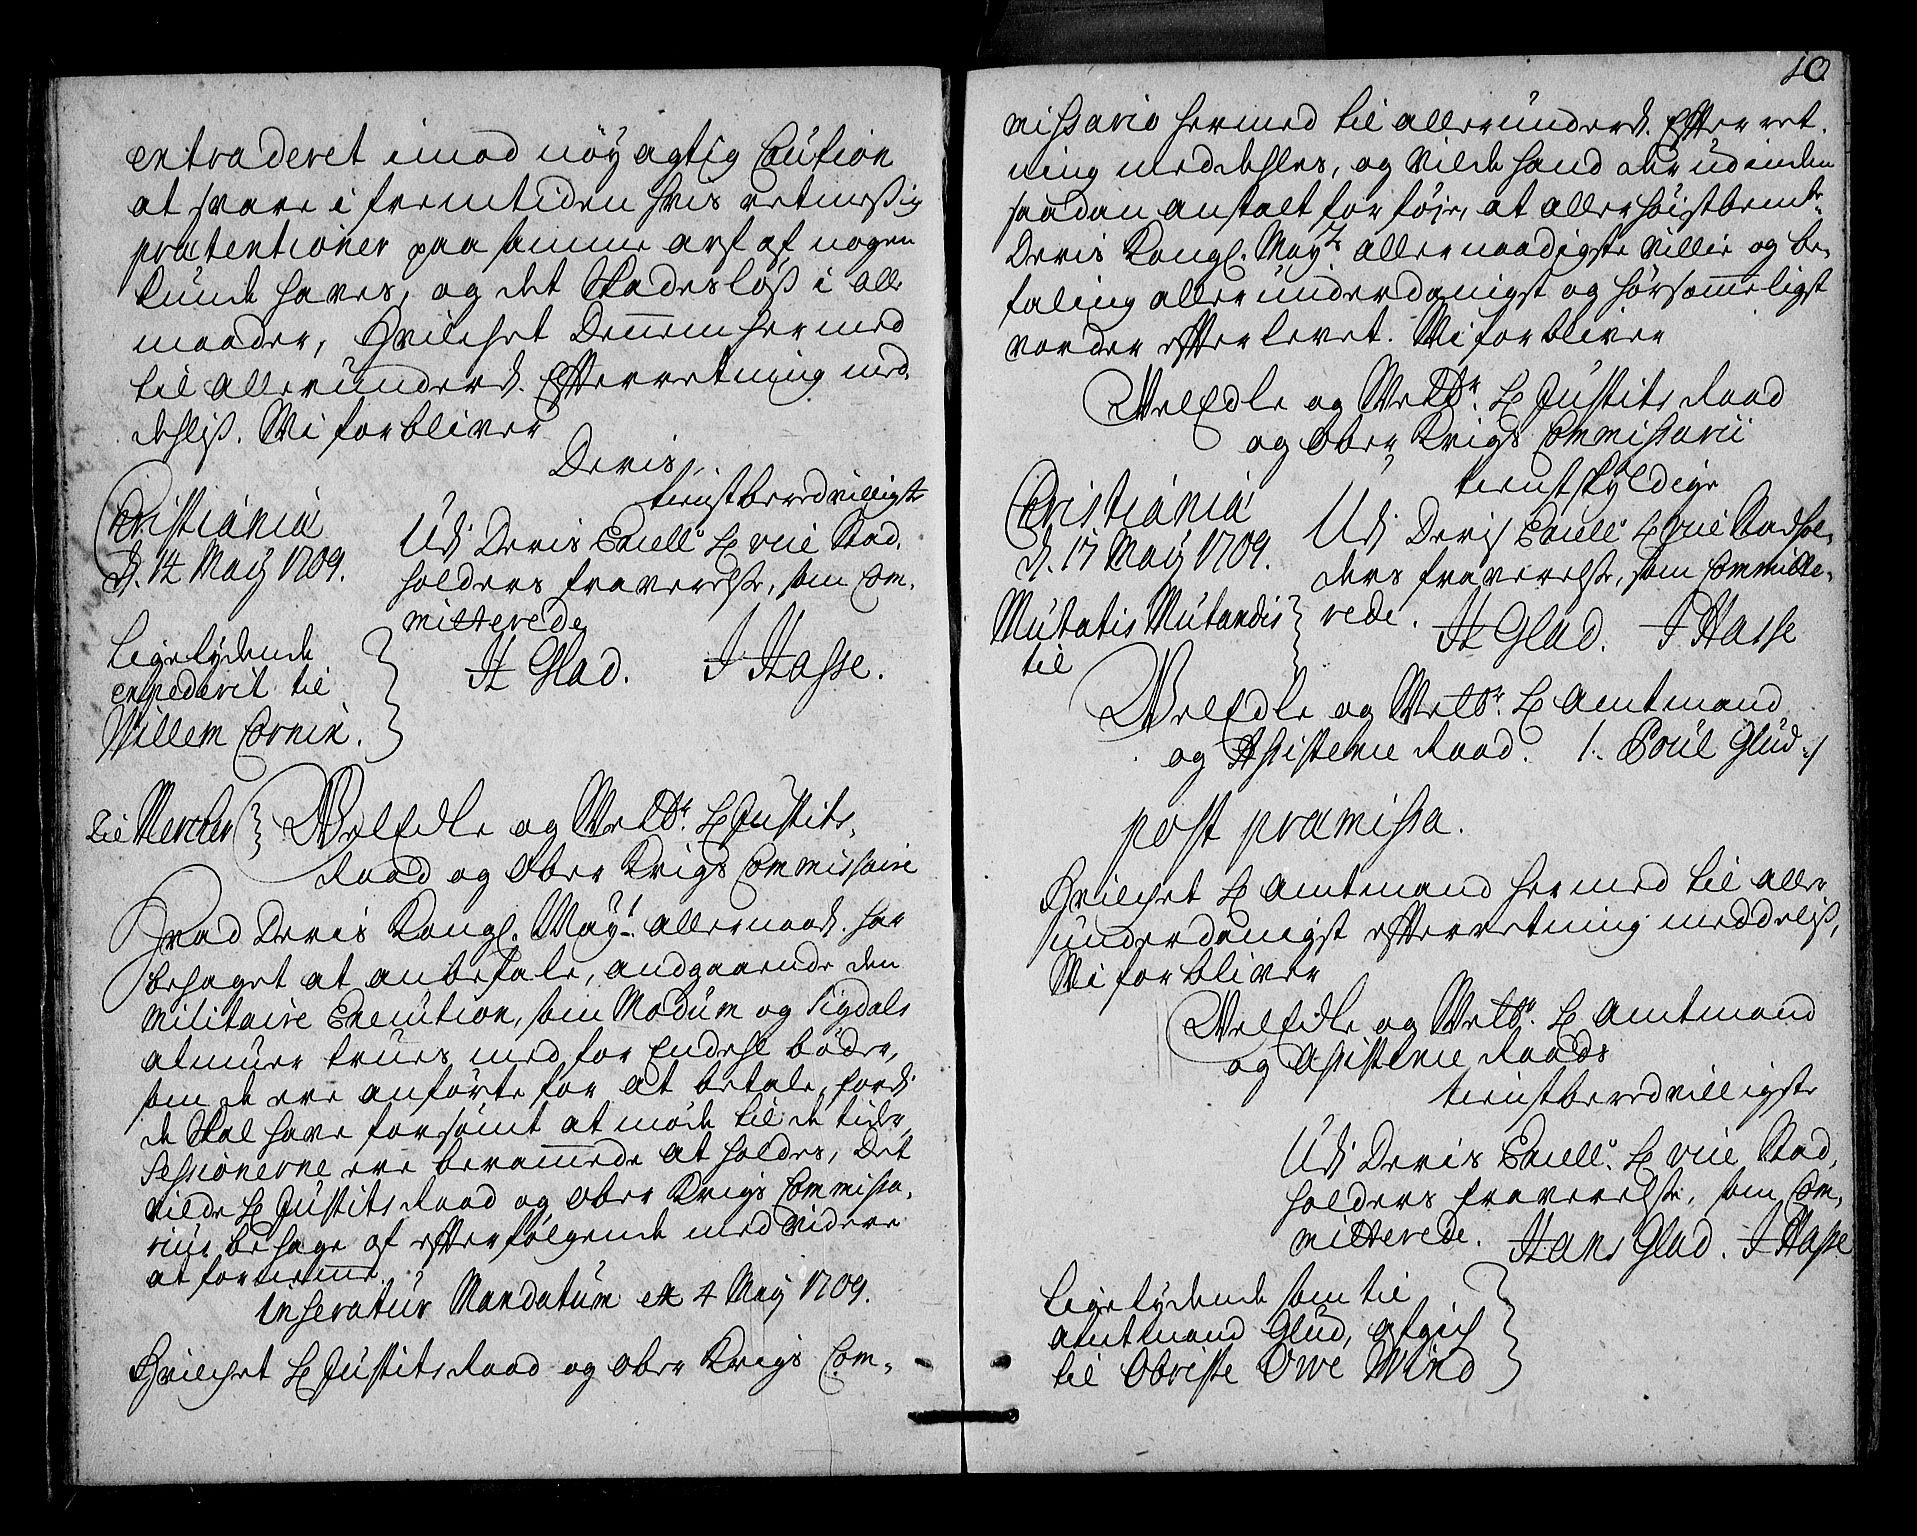 extraderet imod nöyagtig Caution
at svare i fremtiden hvis retmessig
prætentioner paa samme arf af nogen
kunde haves, og det Skadeslös i alle
maader, Hvilchet Dennem hermed
til allerunderd. Efterretning med,
dehlis. Vi forbliver
Deris
tienstberedvilligste
Christiania
d. 14 May 1709.
Udi Deris Excell: H vice Stad,
holders fraverelse, som Com,
mitterede
H Glad. J Hasse.
Ligelydende
expederit til
Willem Cornix.
Til Mercher
WelEdle og Welb: H Justits,
Raad og Ober Krigs Commissaire
Hvad Deris Kongl. May: allernaad. har
behaget at anbefale, andgaaende den
Militaire Execution, som Modum og Sigdals
almuer trues med for Endehl böder,
som de ere anförte for at betale, fordi
de Skal have forsömt at möde til de tider,
Sessionerne ere beramede at holdes, Det
vilde H Justits Raad og Ober Krigs Commissa,
rius behage af efterfölgende med Videre
at fornemme.
Inseratur Mandatum de 4 May 1709.
Hvilchet H Justits Raad og Ober Krigs Com=
10.
missario hermed til allerunderd. Efterret,
ning meddehles, og vilde hand der udinden
saadan anstalt forföje, at allerhöistbemte:
Deris Kongl. Mayts allernaadigste villie og be,
faling allerunderdanigst og hörsommeligst
vorder efterlevet. Vi forbliver
WelEdle og Welb: H Justits Raad
og Ober Krigs Commissarii
tienstskyldige
Christiania
d. 17 May 1709.
Udi Deris Excell: H vice Stadhol,
ders fraverelse, som Committe,
rede. H Glad. J Hasse
Mutatis Mutandis
til
WelEdle og Welb: H Amtmand
og Assistence Raad. /. Poul Glud ./
post præmissa.
Hvilchet H Amtmand hermed til aller
underdanigst efterretning meddelis,
Vi forbliver
WelEdle og Welb: H Amtmand
og Assistence Raads
tienstberedvilligste
Udi Deris Excell: H vice Stad,
holders fraverelse, som Com,
mitterede. Hans Glad. J Hasse
Ligelydende som til
Amtmand Glud, afgich
til Obriste Owe Wind